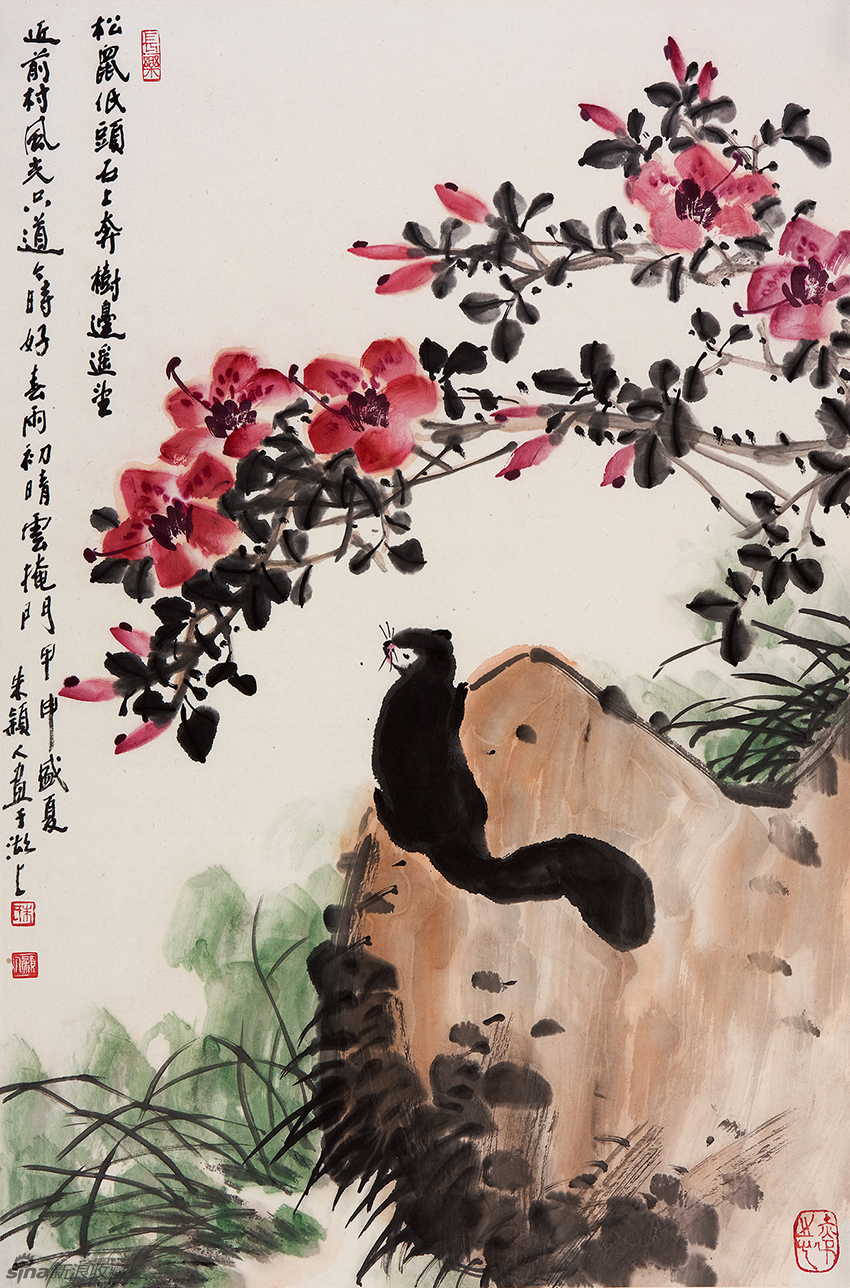 松鼠低頭石上奔樹邊遥望
近前村風光只道今時好春雨初晴雲掩門
甲申盛夏
朱穎人畫于湖上
長樂
朱
穎人
sina新浪收藏